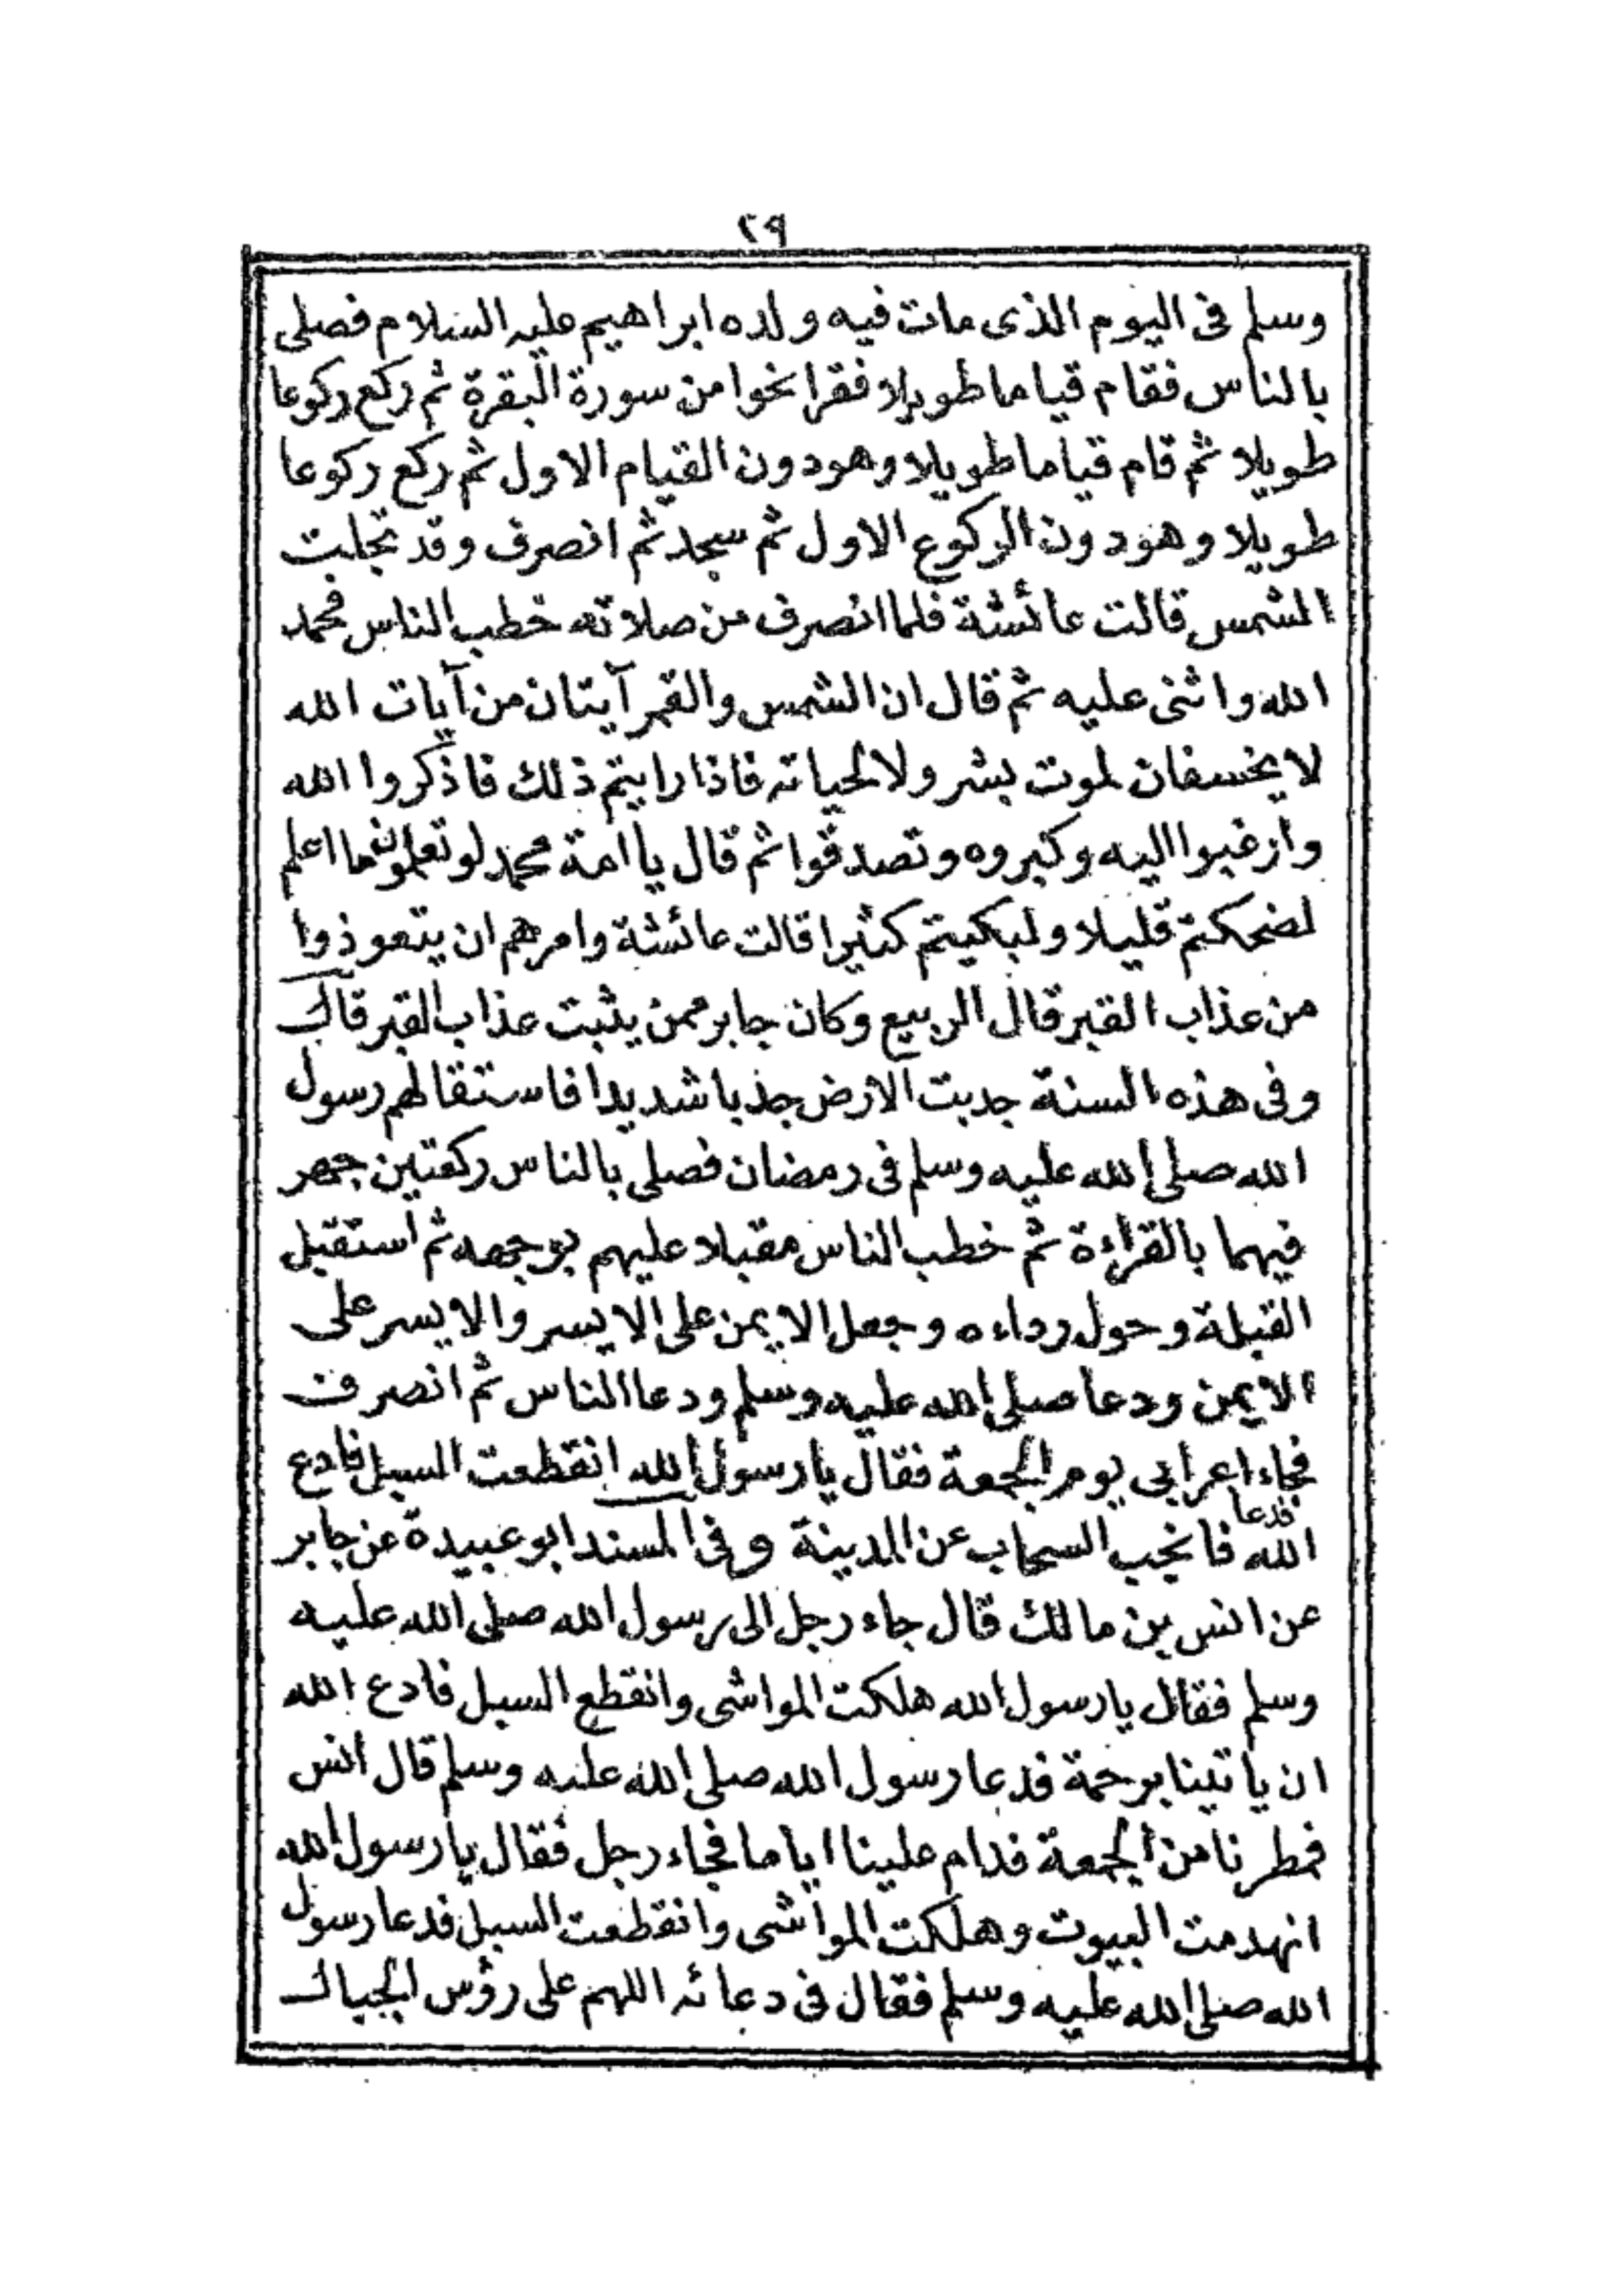 ٢٩
وسلم فى اليوم الذى مات فيه ولده ابراهيم عليه السلام فصلى
بالناس فقام قياما طويلا فقرا نحوا من سورة البقرة ثم ركع ركوعا
طويلا ثم قام قياما طويلا وهو دون القيام الاول ثم ركع ركوعا
طويلا وهو دون الركوع الاول ثم سجد ثم انصرف وقد تجلت
الشمس قالت عائشة فلما انصرف من صلاته خطب الناس فحمد
الله واثنى عليه ثم قال ان الشمس والقمر آيتان من آيات الله
لا يخسفان لموت بشر ولا لحياته فاذا رايتم ذلك فاذكروا الله
وارغبوا اليه وكبروه وتصدقوا ثم قال يا امة محمد لو تعلمون ما اعلم
لضحكتم قليلا ولبكيتم كثيرا قالت عائشة وامرهم ان يتعوذوا
من عذاب القبر قال الربيع وكان جابر ممن يثبت عذاب القبر قال
وفى هذه السنة جدبت الارض جذبا شديدا فاستقا لهم رسول
الله صلى الله عليه وسلم فى رمضان فصلى بالناس ركعتين جهر
فيهما بالقراءة ثم خطب الناس مقبلا عليهم بوجهه ثم استقبل
القبلة وحول رداءه وجعل الايمن على الايسر والايسر على
الايمن ودعا صلى الله عليه وسلم ودعا الناس ثم انصرف
فجاء اعرابى يوم الجمعة فقال يا رسول الله انقطعت السبل فادع
فدعا
الله فانجب السحاب عن المدينة وفى المسند ابو عبيدة عن جابر
عن انس بن مالك قال جاء رجل الى رسول الله صلى الله عليه
وسلم فقال يا رسول الله هلكت المواشى وانقطع السبل فادع الله
ان ياتينا برحمة فدعا رسول الله صلى الله عليه وسلم قال انس
فمطرنا من الجمعة فدام علينا اياما فجاء رجل فقال يا رسول الله
انهدمت البيوت وهلكت المواشى وانقطعت السبل فدعا رسول
الله صلى الله عليه وسلم فقال فى دعائه اللهم على رؤس الجبال